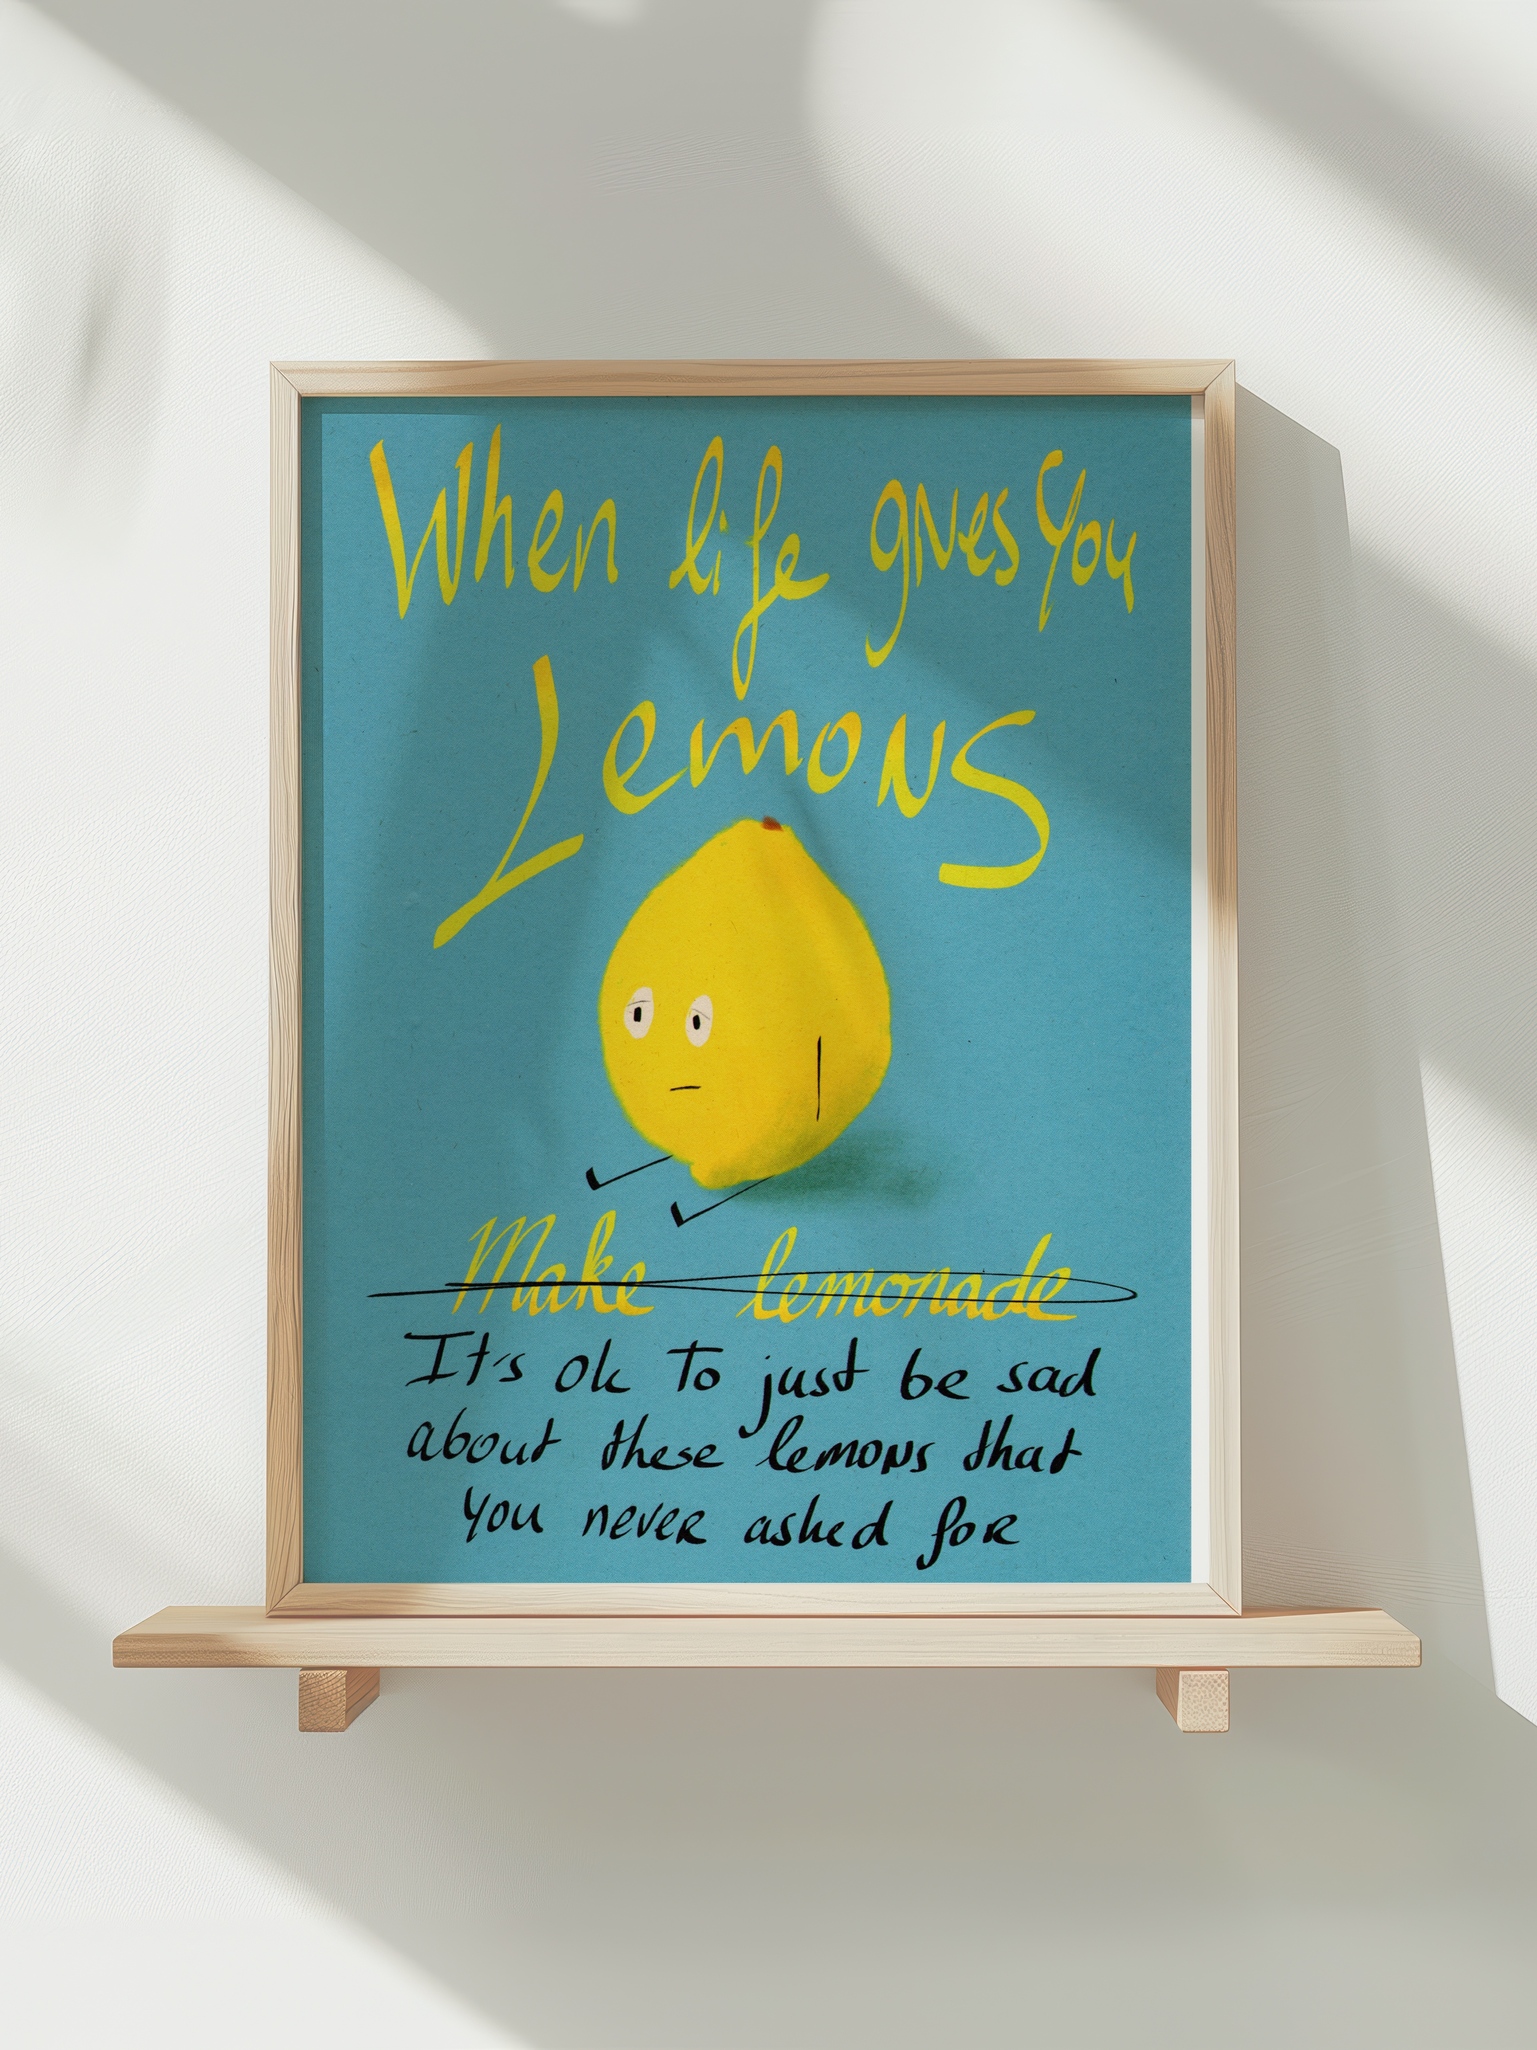 When life gives You
Lemons
Make lemonade
It's ok To just be sad
about these lemons that
you never asked for